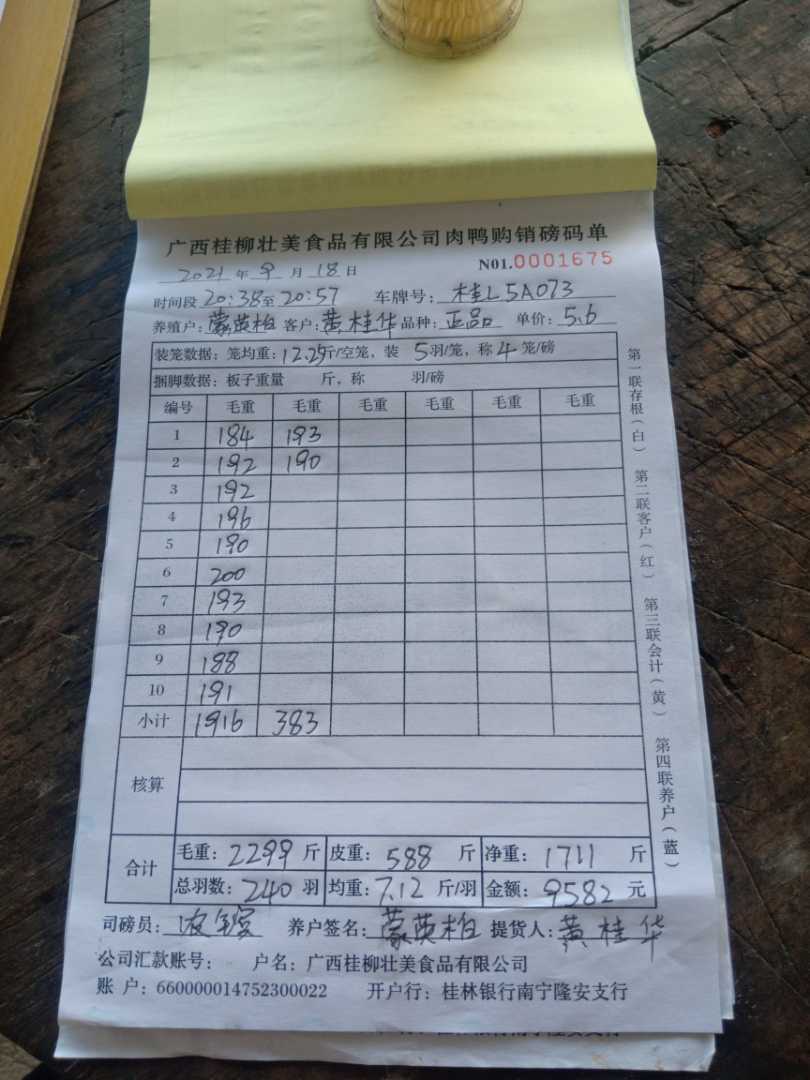 广西桂柳壮美食品有限公司肉鸭购销磅码单
2021年9月18日 N01.0001675
时间段20:38至20:57 车牌号:桂L5A073
养殖户:蒙英柏 客户:黄桂华 品种:正品 单价:5.6
装笼数据:笼均重:12.25斤/空笼,装 5羽/笼,称4笼/磅
捆脚数据:板子重量 斤,称 羽/磅
编号 毛重 毛重 毛重 毛重 毛重 毛重
1 184 193
2 192 190
3 192
4 196
5 190
6 200
7 193
8 190
9 188
10 191
小计 1916 383
核算
合计 毛重:2299斤 皮重:588斤 净重:1711斤
总羽数:240羽 均重:7.12斤/羽 金额:9582元
司磅员: 养户签名:蒙英柏 提货人:黄桂华
公司汇款账号: 户名:广西桂柳壮美食品有限公司
账 户:660000014752300022 开户行:桂林银行南宁隆安支行
第一联存根(白) 第二联客户(红) 第三联会计(黄) 第四联养户(蓝)